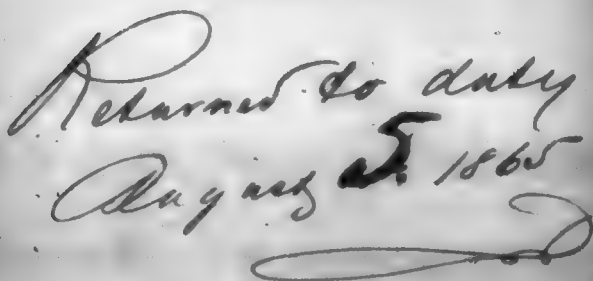 Returned to duty
August 5. 1865